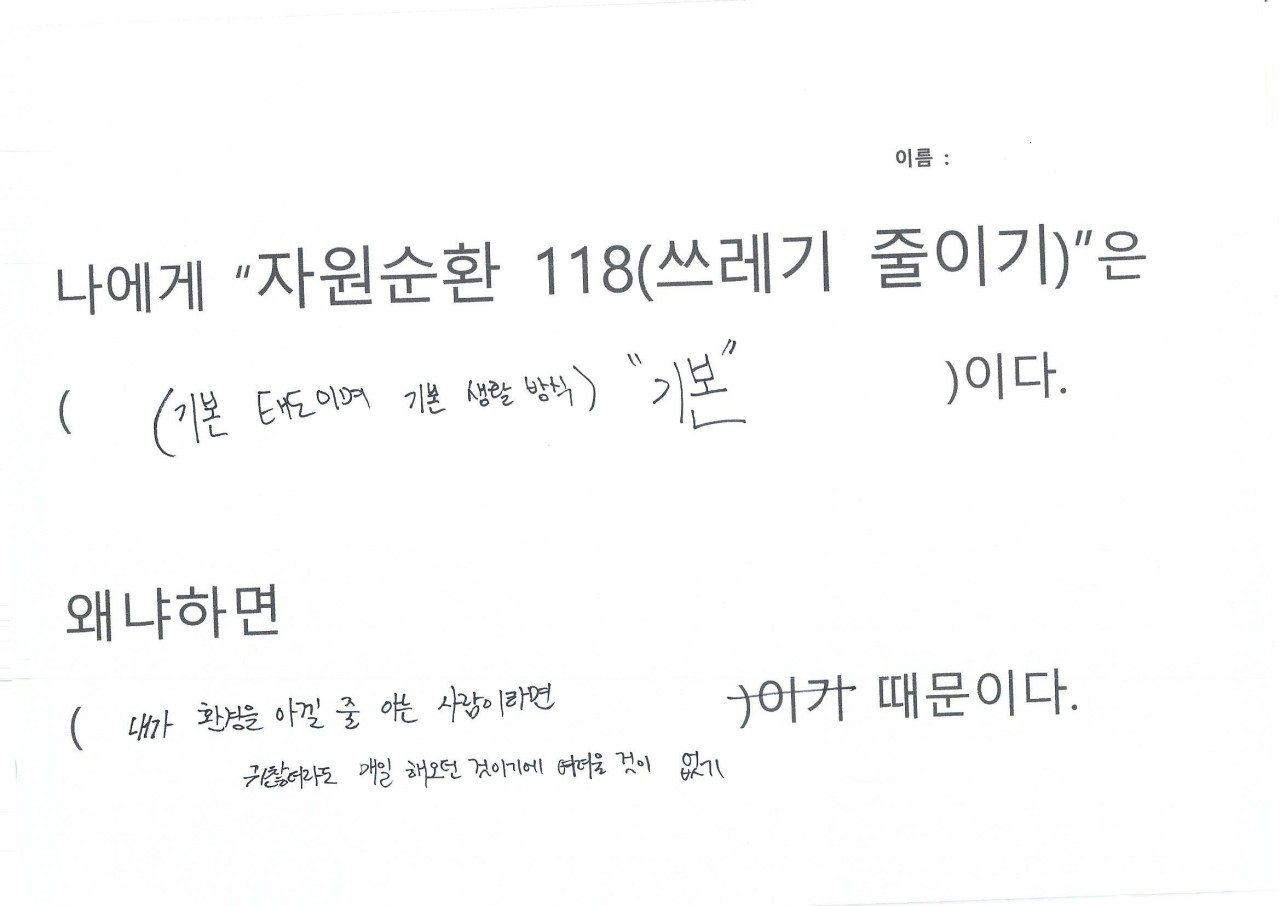 이름 :
나에게 "자원순환 118(쓰레기 줄이기)"은
( (기본 태도이며 기본 생활 방식) "기본" )이다.
왜냐하면
( 내가 환경을 아낄 줄 아는 사람이라면 )이기 때문이다.
귀찮더라도 매일 해오던 것이기에 어려울 것이 없기